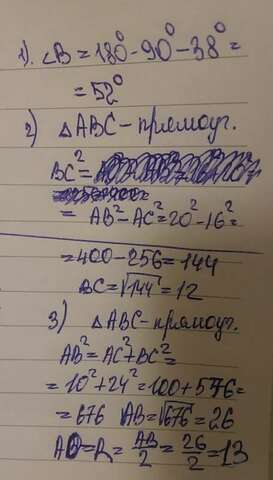 1). ∠B = 180° - 90° - 38° =
= 52°
2) △ABC - прямоуг.
BC² =
= AB² - AC² = 20² - 16² =
= 400 - 256 = 144
BC = √144 = 12
3) △ABC - прямоуг.
AB² = AC² + BC² =
= 10² + 24² = 100 + 576 =
= 676 AB = √676 = 26
AO = R = AB/2 = 26/2 = 13